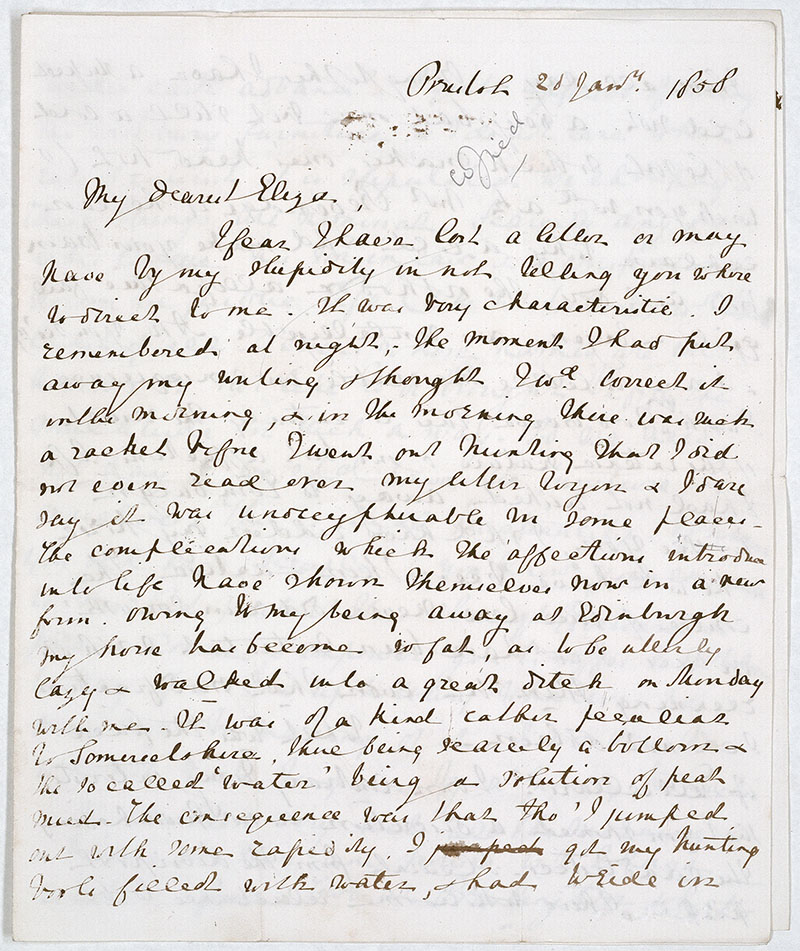 20 Jany. 1858
copied
My dearest Eliza,
I fear I have lost a letter or may
have by my stupidity in not telling you where
to direct to me. It was very characteristic. I
remembered at night, the moment I had put
away my writing & thought I wd. correct it
in the morning, & in the morning there was such
a racket before I went out hunting that I did
not even read over my letter to you & I dare
say it was undecypherable in some places.
The complications which the affections introduce
into life have shown themselves now in a new
form. Owing to my being away at Edinburgh
my horse has become so fat, as to be utterly
lazy & walked into a great ditch on Monday
with me. It was of a kind rather peculiar
to Somersetshire, there being scarcely a bottom &
the so called 'water' being a solution of peat
mud. The consequence was that tho' I jumped
out with some rapidity. I got my hunting
boots filled with water, & had to ride in